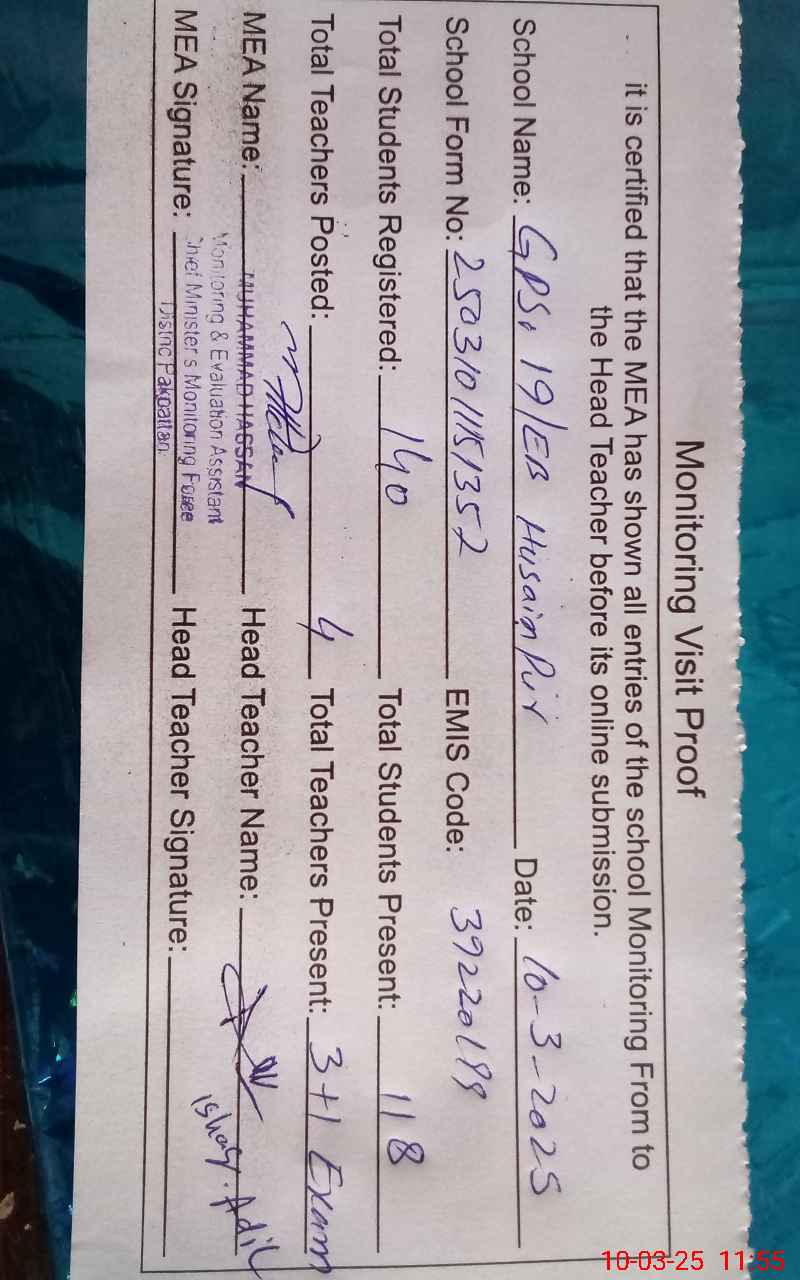 Monitoring Visit Proof
it is certified that the MEA has shown all entries of the school Monitoring From to
the Head Teacher before its online submission.
School Name: GPS. 19/EB Husain Pur Date: 10-3-2025
School Form No: 2503101151352 EMIS Code: 39220199
Total Students Registered: 140 Total Students Present: 118
Total Teachers Posted: 4 Total Teachers Present: 3+1 Exam
MEA Name: MUHAMMAD HASSAN Head Teacher Name: Ishaq. Adil
Monitoring & Evaluation Assistant
Chief Minister's Monitoring Force
MEA Signature: District Pakpattan. Head Teacher Signature:
10-03-25 11:55